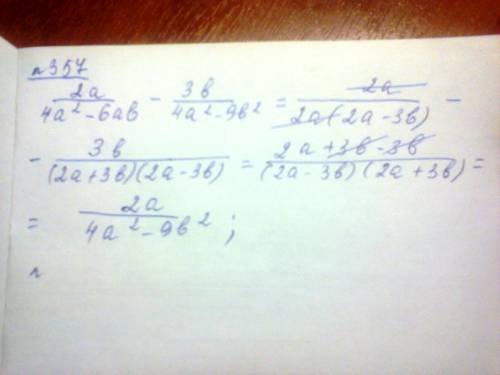 №357
2a/(4a² - 6ab) - 3b/(4a² - 9b²) = 2a/(2a(2a - 3b)) -
- 3b/((2a + 3b)(2a - 3b)) = (2a + 3b - 3b)/((2a - 3b)(2a + 3b)) =
= 2a/(4a² - 9b²);